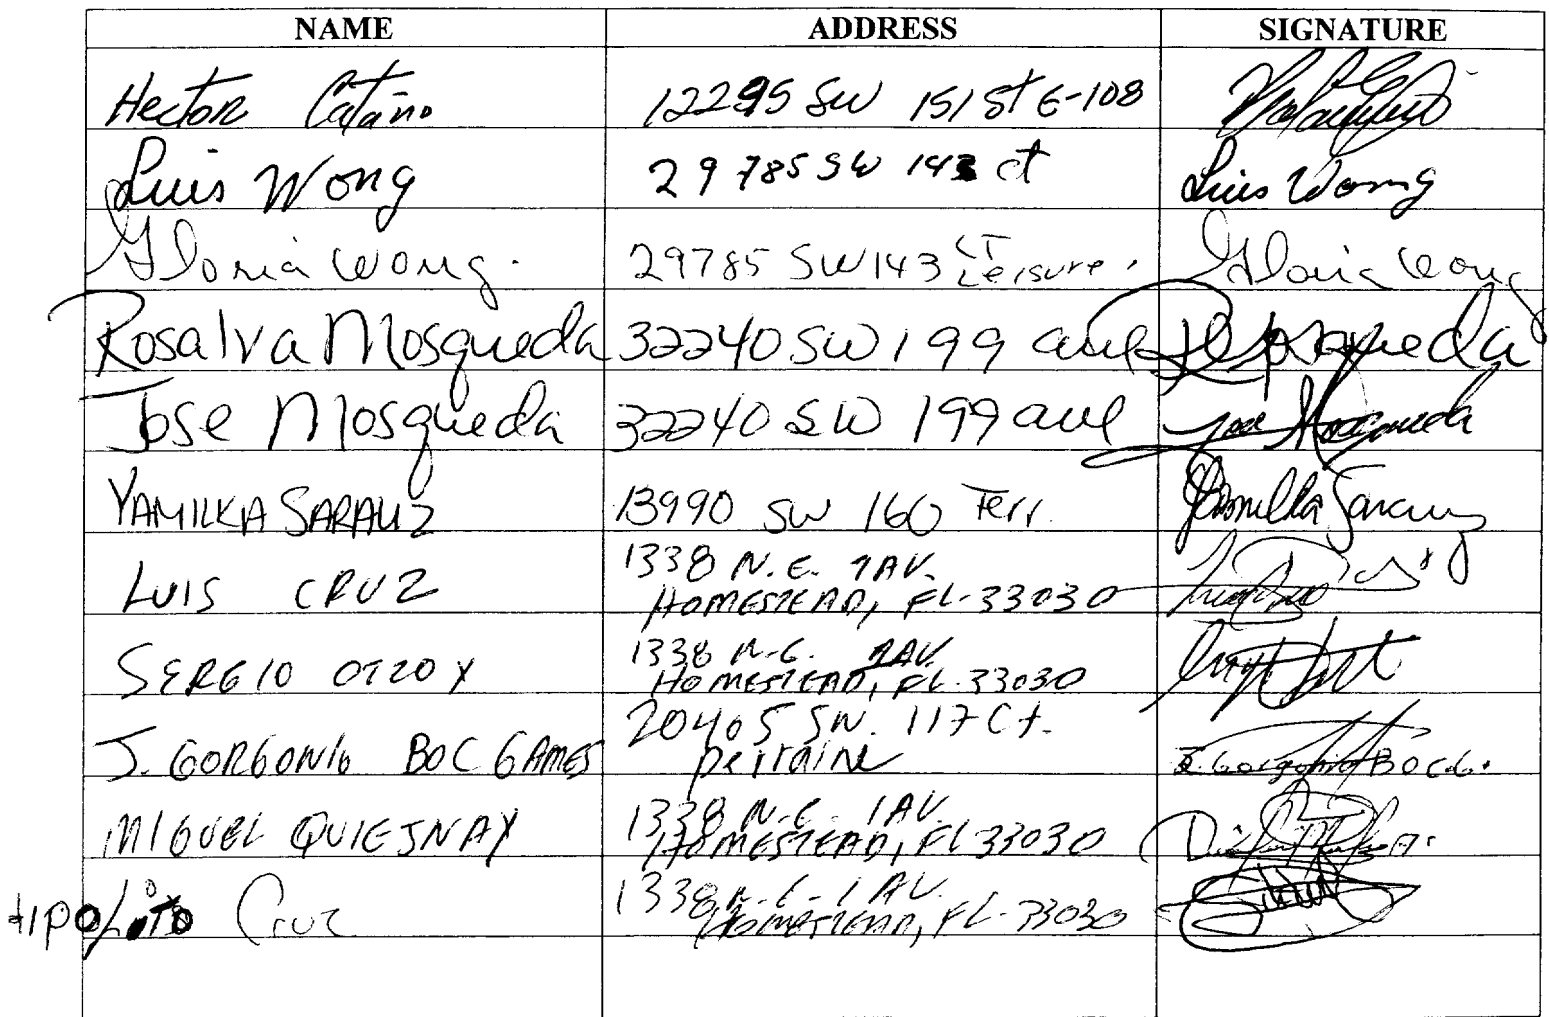 NAME ADDRESS SIGNATURE
Hector Cataño 12295 SW 151 St E-108
Luis Wong 29785 SW 143 ct Luis Wong
Gloria Wong. 29785 SW 143 CT Leisure. Gloria Wong
Rosalva Mosqueda 32240 SW 199 ave R Mosqueda
Jose Mosqueda 32240 SW 199 ave Jose Mosqueda
YAMILKA SARAUZ 13990 SW 160 Terr. Yamilka Sarauz
LUIS CRUZ 1338 N.E. 1AV.
HOMESTEAD, FL. 33030
SERGIO OTZOY 1338 N.E. 1AV.
HOMESTEAD, FL. 33030
J. GORGONIO BOC GAMES 20405 SW. 117 Ct.
perraine J. Gorgonio BOC G.
MIGUEL QUIEJNAY 1338 N.E. 1AV.
HOMESTEAD, FL 33030
Hipolito Cruz 1338 N.E. 1AV.
HOMESTEAD, FL. 33030